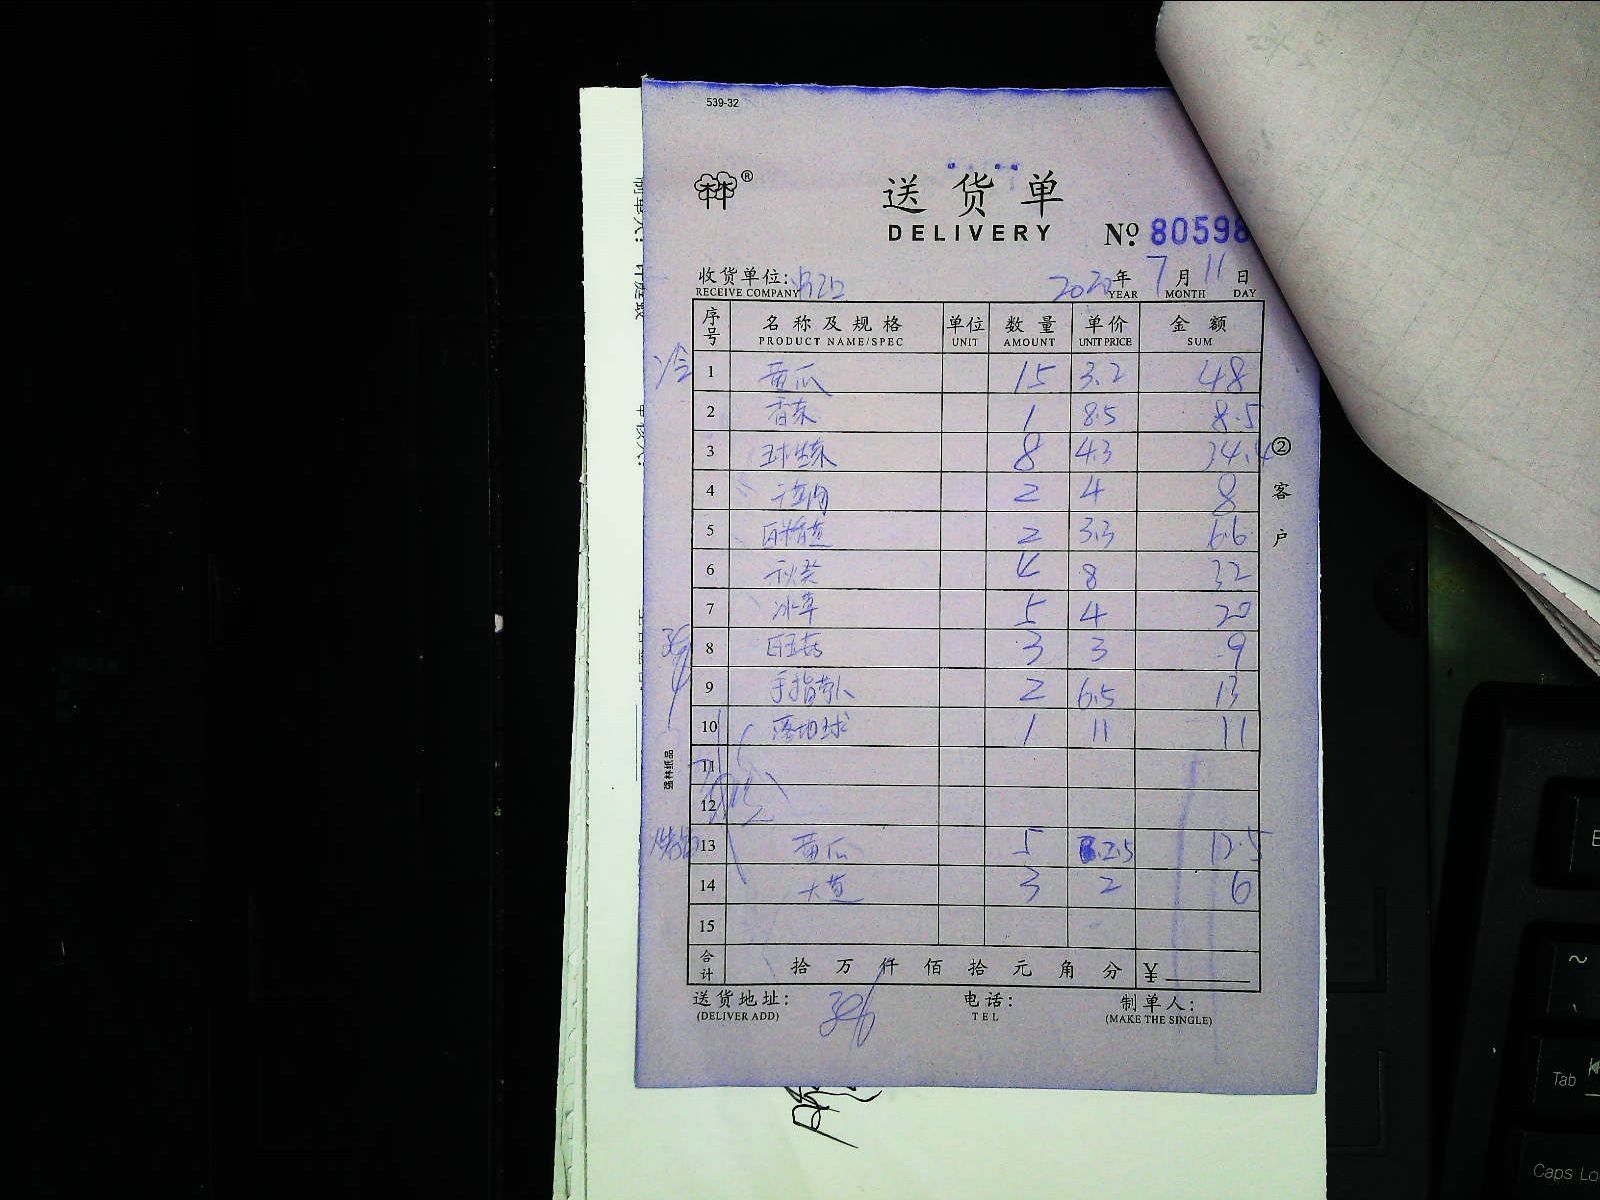 539-32
®
送货单
DELIVERY
Nº 80598
收货单位:
2020年7月11日
RECEIVE COMPANY YEAR MONTH DAY
序号 名称及规格 单位 数量 单价 金额
PRODUCT NAME/SPEC UNIT AMOUNT UNIT PRICE SUM
冷
1 黄瓜 15 3.2 48
2 香菜 1 8.5 8.5
3 球生菜 8 4.3 34.4
4 2 4 8
5 2 3.3 6.6
6 秋葵 4 8 32
7 冰草 5 4 20
8 3 3 9
9 手指 2 6.5 13
10 落地球 1 11 11
11
12
13 黄瓜 5 2.5 12.5
14 大葱 3 2 6
15
合计 拾 万 仟 佰 拾 元 角 分 ¥
送货地址: 电话: 制单人:
(DELIVER ADD) TEL (MAKE THE SINGLE)
396
②客户
强林纸品
Tab
Caps Lo